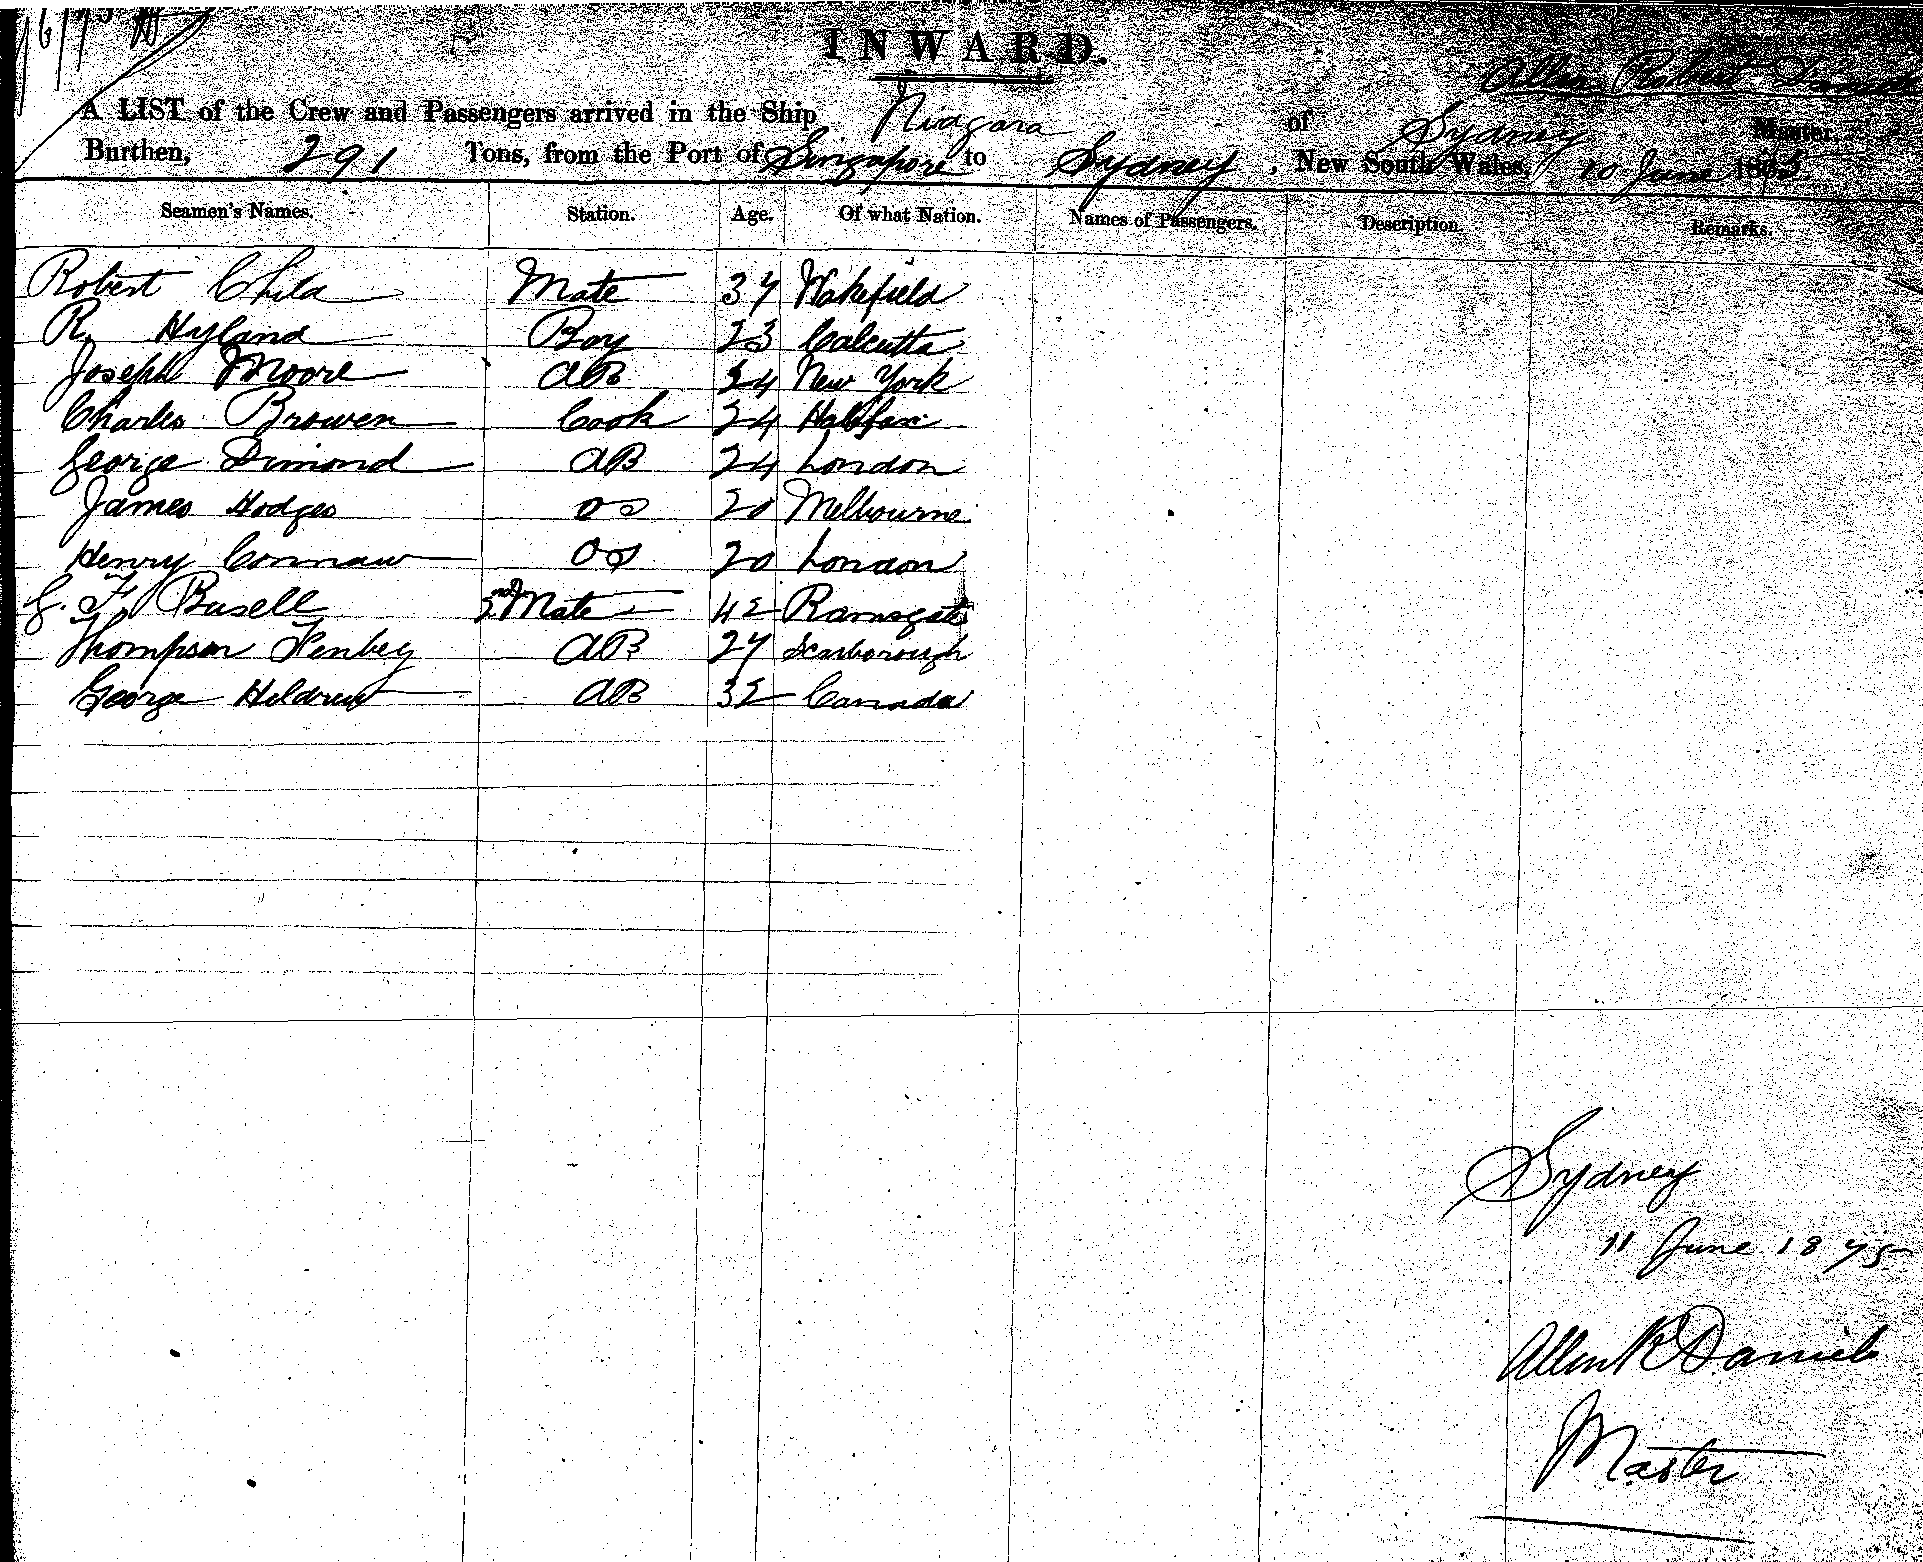 INWARD.
Allen Robert Daniels
A LIST of the Crew and Passengers arrived in the Ship Niagara of Sydney Master,
Burthen, 291 Tons, from the Port of Singapore to Sydney, New South Wales, 10 June
Seamen's Names. Station. Age. Of what Nation. Names of Passengers. Description. Remarks.
Robert Child Mate 37 Wakefield
R. Hyland Boy 23 Calcutta
Joseph Moore AB 34 New York
Charles Browen Cook 24 Halifax
George Dimond AB 24 London
James Hodges OS 20 Melbourne
Henry OS 20 London
G. F. Busell 2nd Mate 42 Ramsgate
Thompson Fenbey AB 27 Scarborough
George Heldrew AB 32 Canada
Sydney
11 June 1875
Allen R Daniels
Master